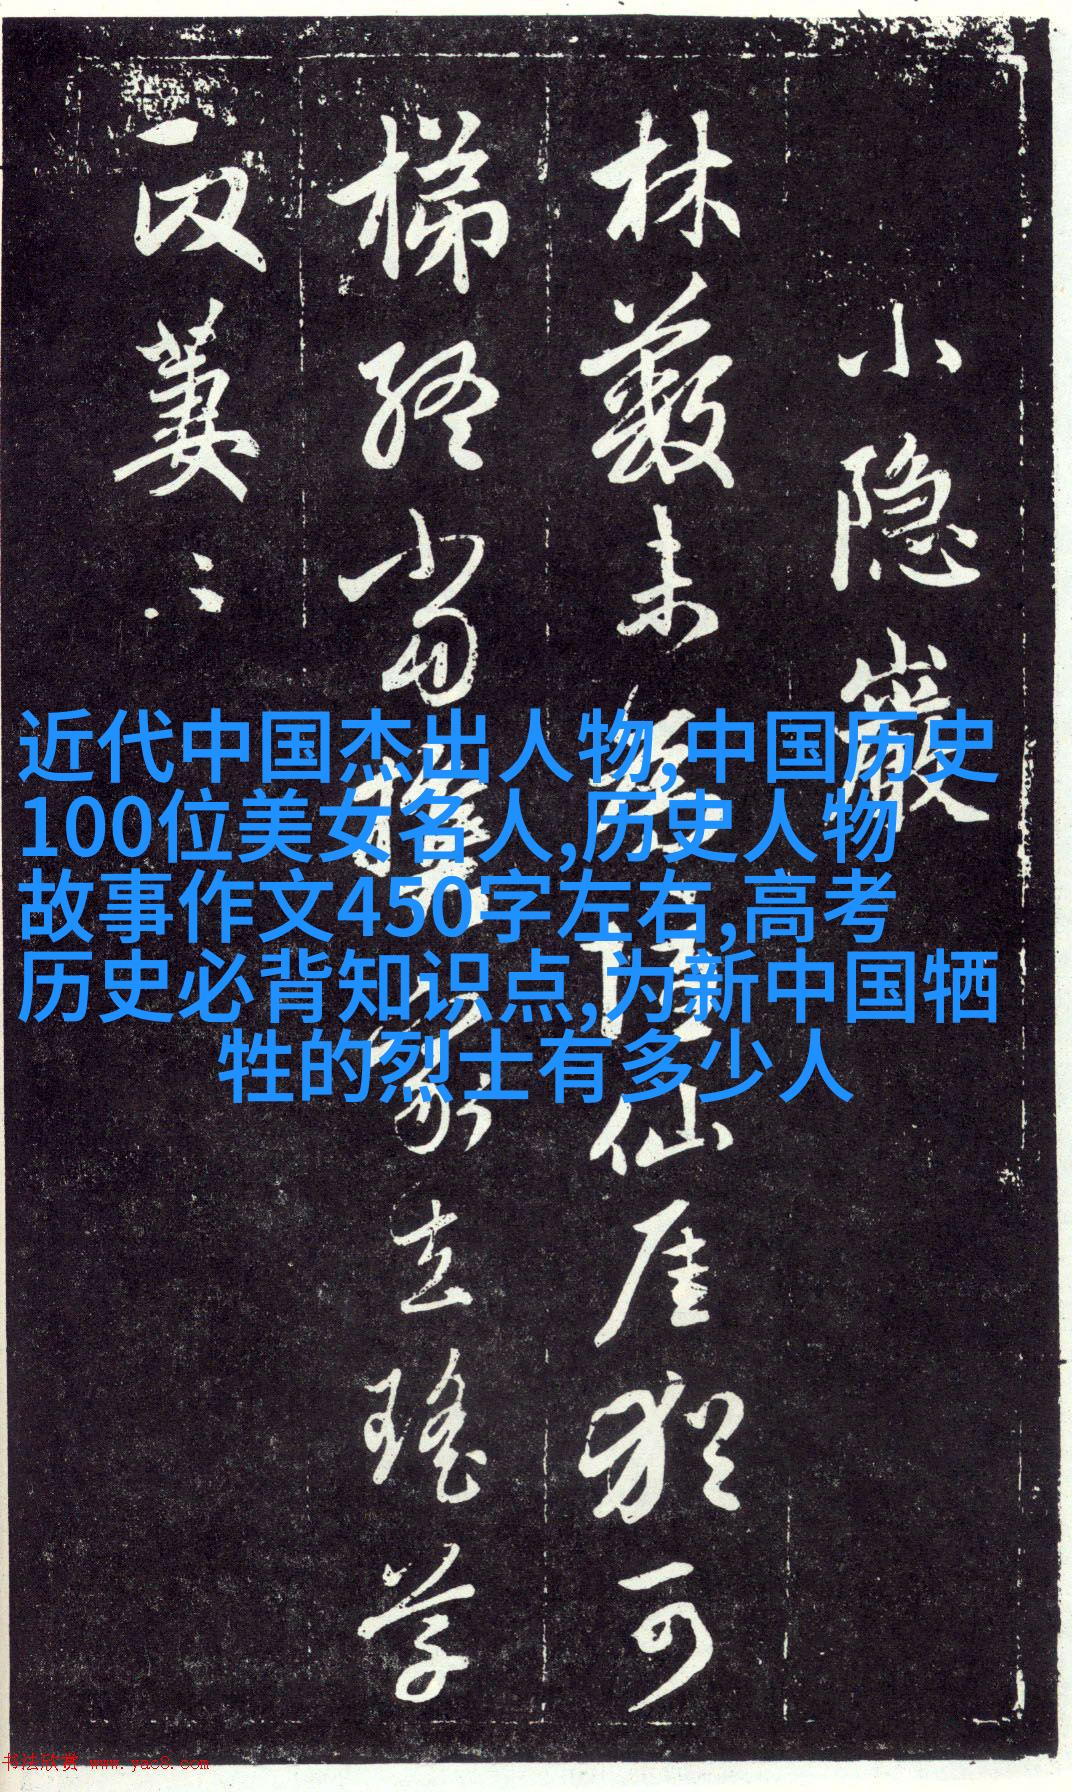 小隐巖
林薮未仙崖猶可
梯终當去瑶草
政萋〻
近代中国杰出人物,中国历史
100位美女名人,历史人物
故事作文450字左右,高考
历史必背知识点,为新中国牺
牲的烈士有多少人
书法欣赏 www.yac8.com